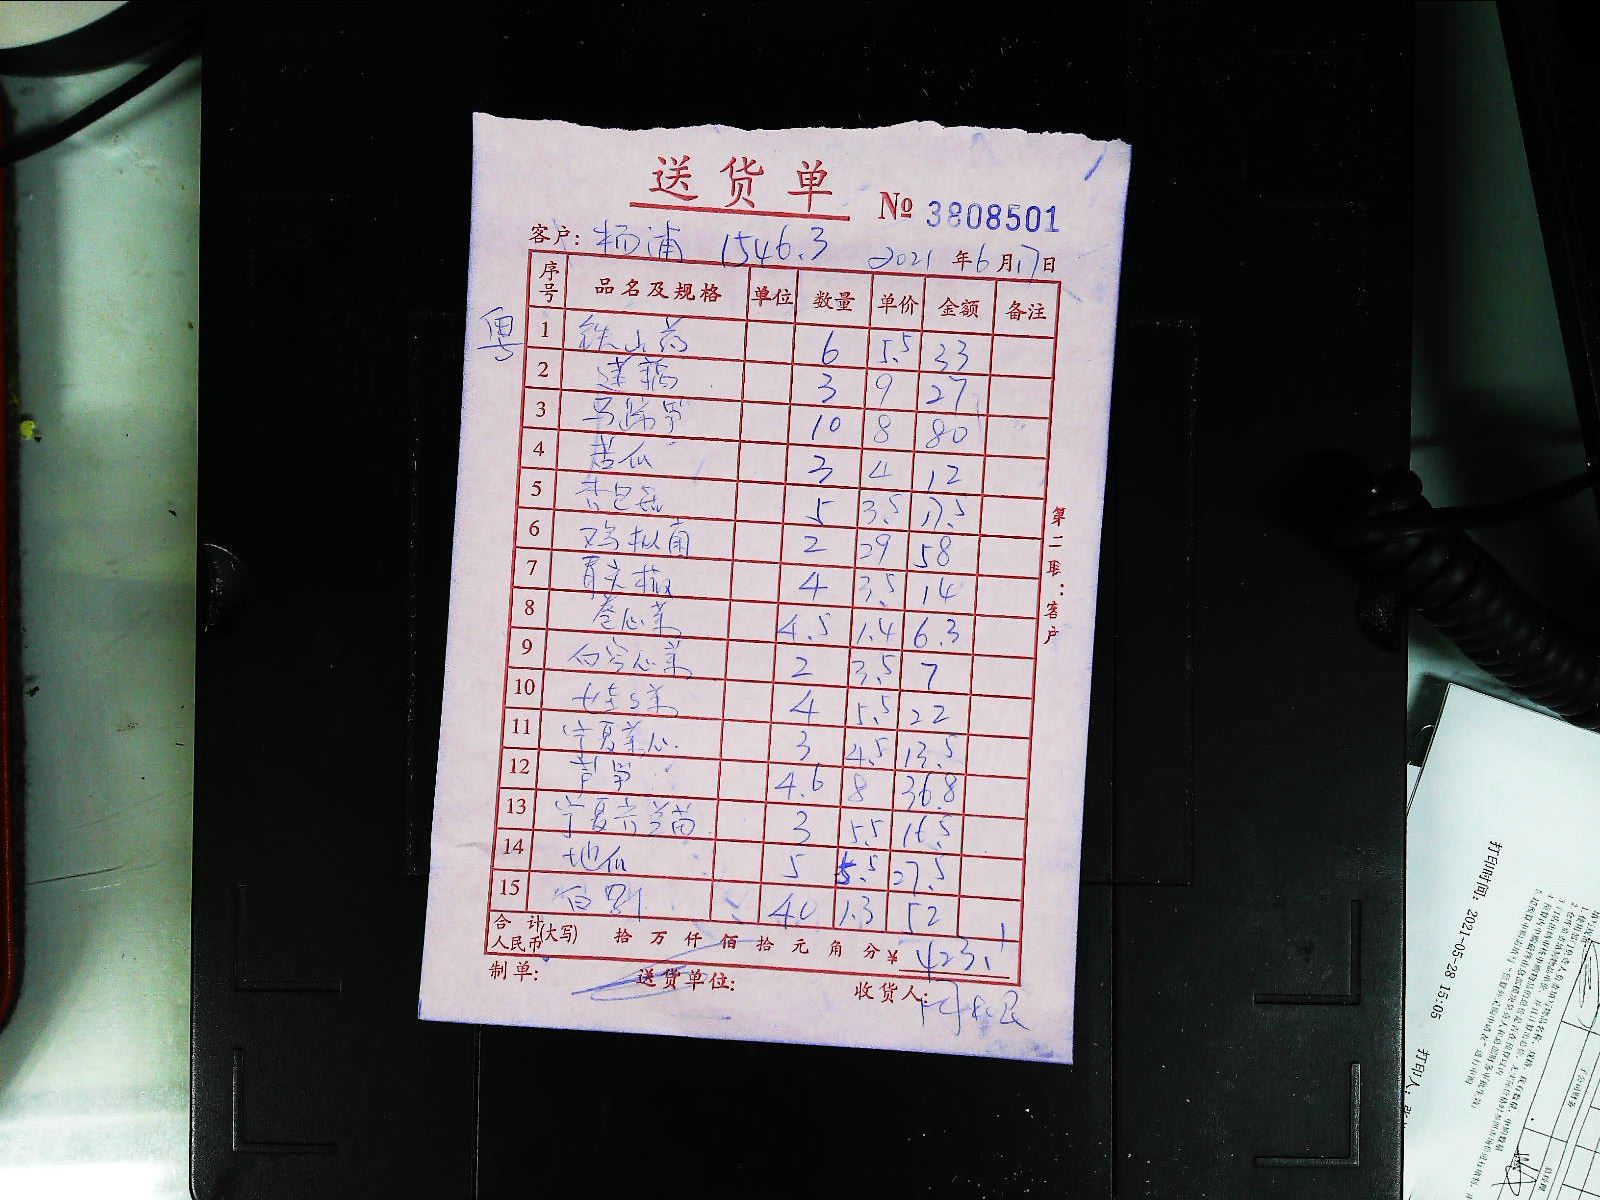 送货单 № 3808501
客户: 杨浦 1546.3 2021年6月17日
序号 品名及规格 单位 数量 单价 金额 备注
粤
1 铁山药 6 5.5 33
2 莲藕 3 9 27
3 马蹄笋 10 8 80
4 苦瓜 3 4 12
5 杏包菇 5 3.5 17.5
6 鸡枞菌 2 29 58
7 青尖椒 4 3.5 14
8 卷心菜 4.5 1.4 6.3
9 白空心菜 2 3.5 7
10 4 5.5 22
11 宁夏菜心 3 4.5 13.5
12 芦笋 4.6 8 36.8
13 宁夏芥兰苗 3 5.5 16.5
14 地瓜 5 5.5 27.5
15 白 40 1.3 52
合计人民币(大写) 拾 万 仟 佰 拾 元 角 分 ¥ 423.1
制单: 送货单位: 收货人:
第二联:客户
打印时间: 2021-05-28 15:05
打印人: